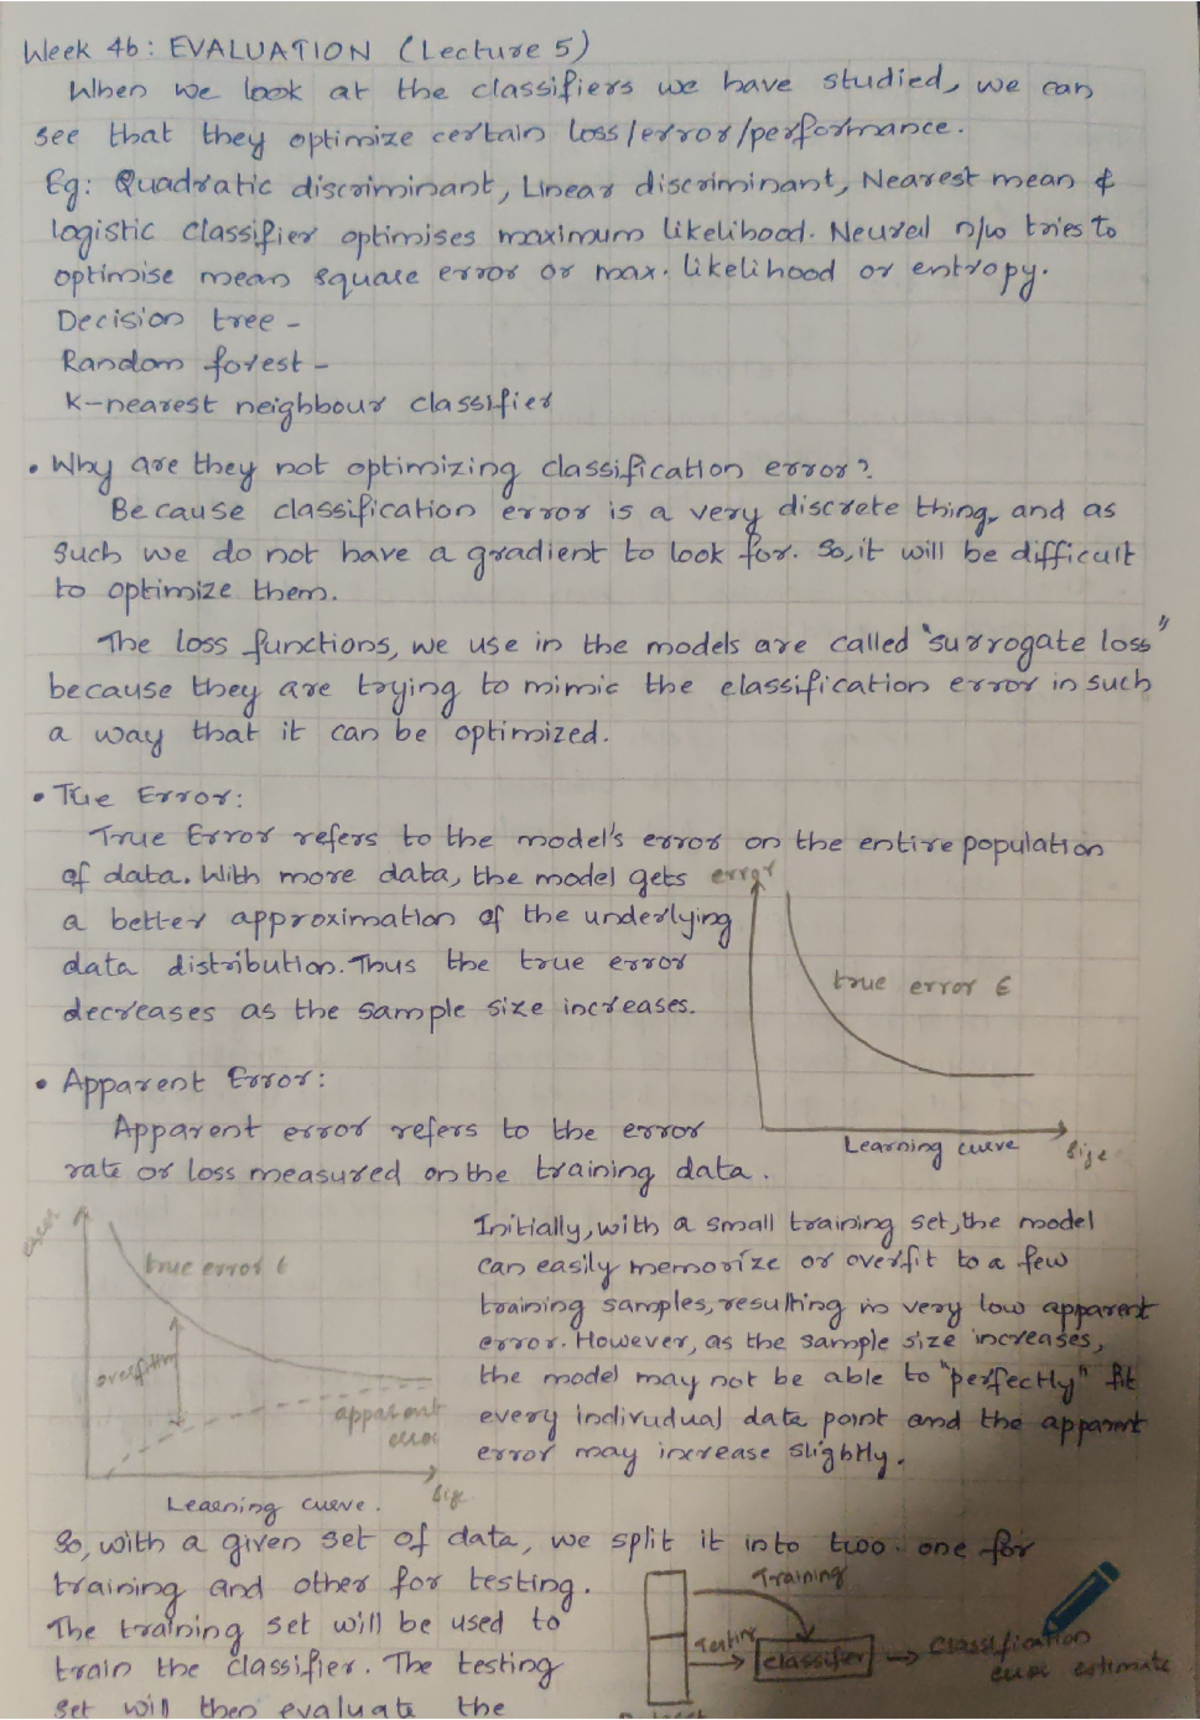 Week 4b: EVALUATION (Lecture 5)
When we look at the classifiers we have studied, we can
see that they optimize certain loss/error/performance.
Eg: Quadratic discriminant, Linear discriminant, Nearest mean &
logistic classifier optimises maximum likelihood. Neural n/w tries to
optimise mean square error or max. likelihood or entropy.
Decision tree -
Random forest -
K-nearest neighbour classifier
• Why are they not optimizing classification error?
Because classification error is a very discrete thing, and as
such we do not have a gradient to look for. So, it will be difficult
to optimize them.
The loss functions, we use in the models are called "surrogate loss"
because they are trying to mimic the classification error in such
a way that it can be optimized.
• True Error:
True Error refers to the model's error on the entire population
of data. With more data, the model gets
a better approximation of the underlying
data distribution. Thus the true error
decreases as the sample size increases.
error
true error ε
Learning curve
Size
• Apparent Error:
Apparent error refers to the error
rate or loss measured on the training data.
error
true error ε
overfitting
apparent
error
Size
Learning curve.
Initially, with a small training set, the model
can easily memorize or overfit to a few
training samples, resulting in very low apparent
error. However, as the sample size increases,
the model may not be able to "perfectly" fit
every indivudual data point and the apparent
error may increase slightly.
So, with a given set of data, we split it into two. one for
training and other for testing.
The training set will be used to
train the classifier. The testing
set will then evaluate the
Training
Testing
Classifier
Classification
error estimate
Dataset